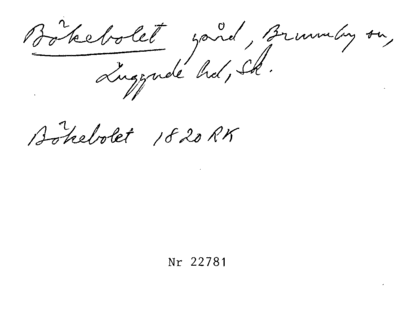 Bökebolet gård, Brunnby sn,
Luggude hd, Sk.
Bökebolet 1820 RK
Nr 22781